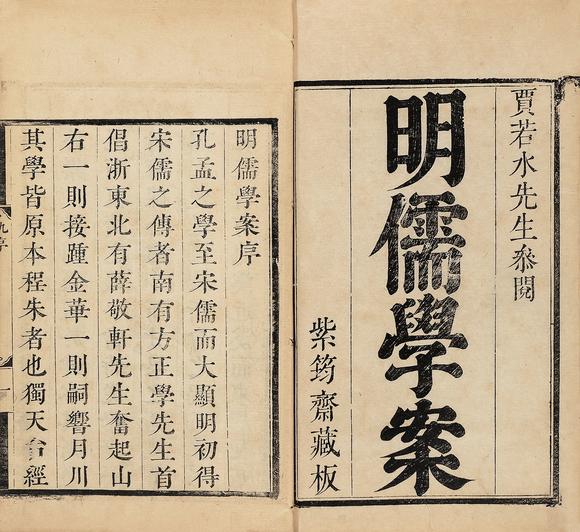 賈若水先生叅閱
明儒學案
紫筠齋藏板
明儒學案序
孔孟之學至宋儒而大顯明初得
宋儒之傳者南有方正學先生首
倡浙東北有薛敬軒先生奮起山
右一則接踵金華一則嗣響月川
其學皆原本程朱者也獨天台經